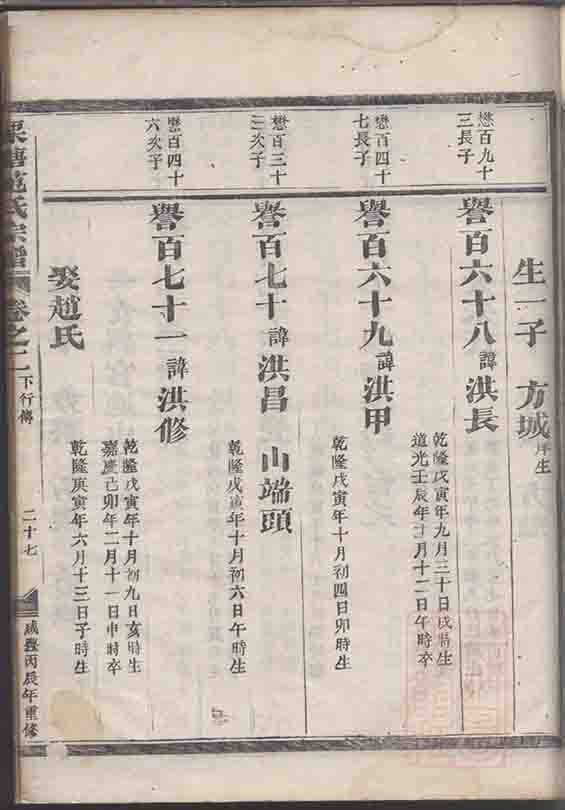 生一子 方城庠生
懋百九十三長子
譽百六十八諱洪長
乾隆戊寅年九月三十日戌時生
道光壬辰年十月十二日午時卒
懋百四十七長子
譽百六十九諱洪甲
乾隆戊寅年十月初四日卯時生
懋百三十三次子
譽百七十諱洪昌 山端頭
乾隆戊寅年十月初六日午時生
懋百四十六次子
譽百七十一諱洪修
乾隆戊寅年十月初九日亥時生
嘉慶己卯年二月十一日申時卒
娶趙氏
乾隆庚寅年六月十三日子時生
范氏宗譜 卷之二 下行傳 二十七 咸豐丙辰年重修